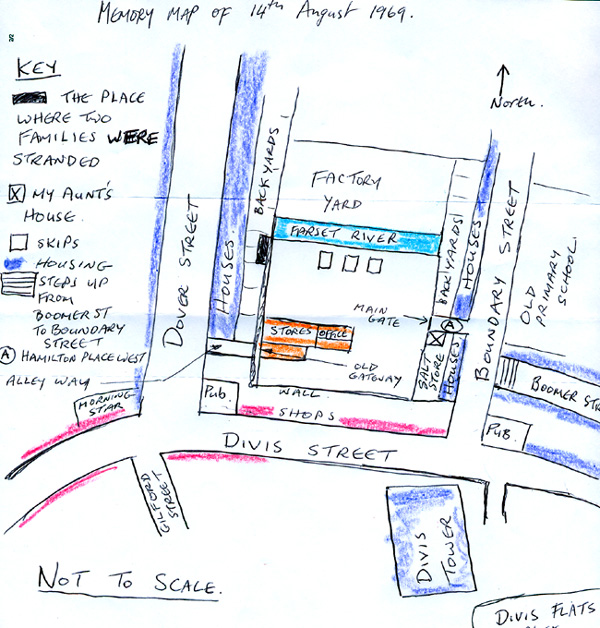 MEMORY MAP OF 14th AUGUST 1969.
KEY
THE PLACE
WHERE TWO
FAMILIES WERE
STRANDED
X MY AUNT'S
HOUSE.
SKIPS
HOUSING
STEPS UP
FROM
BOOMER ST
TO BOUNDARY
STREET
A HAMILTON PLACE WEST
ALLEY WAY
North.
DOVER STREET
HOUSES
BACKYARDS
FACTORY
YARD
FARSET RIVER
BACKYARDS
HOUSES
BOUNDARY STREET
OLD
PRIMARY
SCHOOL.
MAIN
GATE
A
X
STORES
OFFICE
OLD
GATEWAY
SALT
STORE
HOUSES
BOOMER STR
MORNING
STAR
Pub.
WALL
SHOPS
PUB.
DIVIS STREET
GILFORD
STREET
DIVIS
TOWER
NOT TO SCALE.
DIVIS FLATS